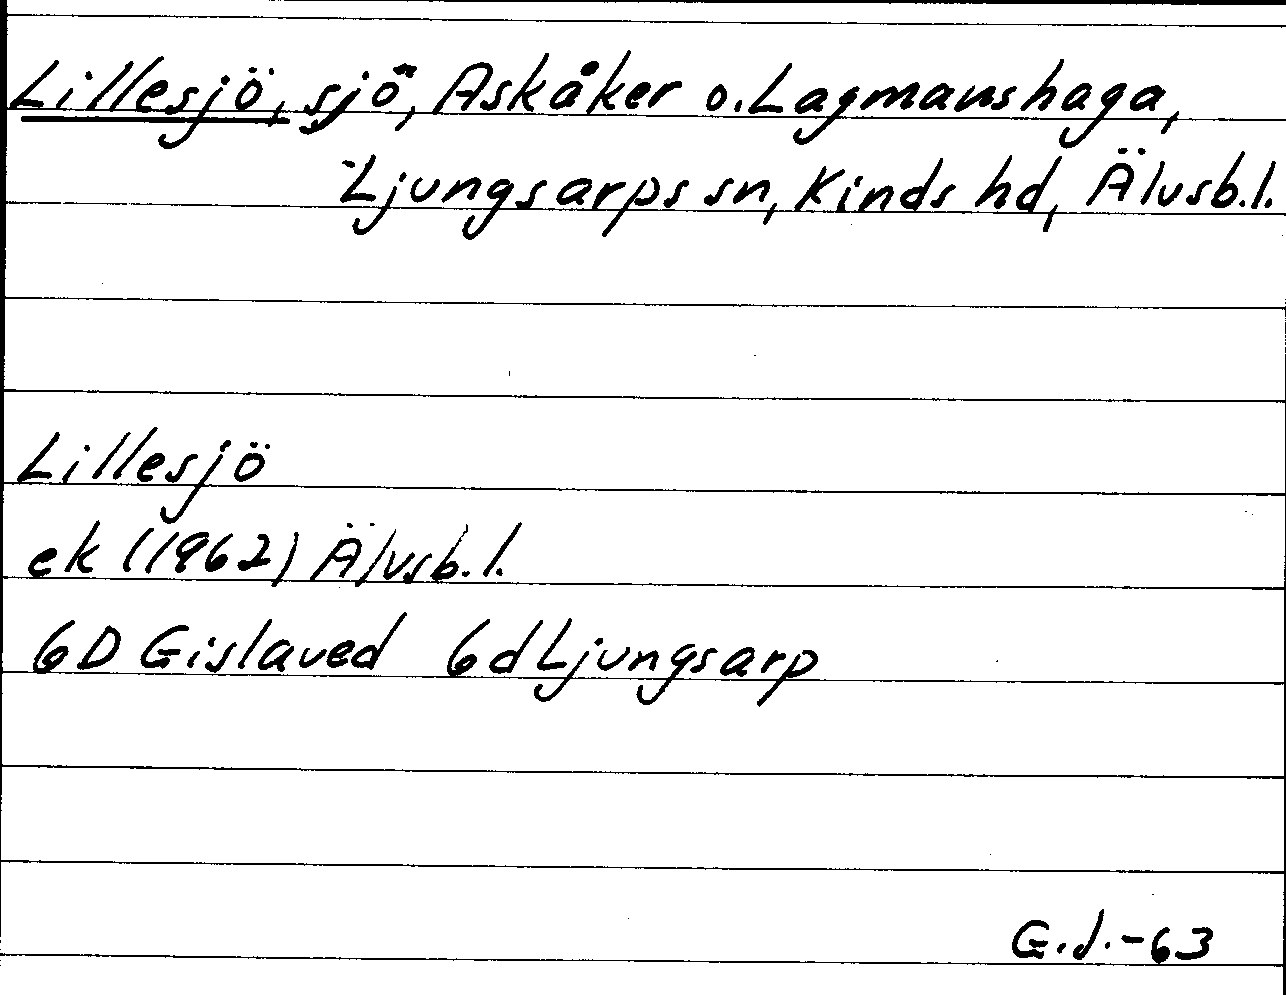 Lillesjö, sjö, Askåker o. Lagmanshaga,
Ljungsarps sn, Kinds hd, Älvsb.l.
Lillesjö
ek (1962) Älvsb.l.
6D Gislaved 6d Ljungsarp
G.J.-63